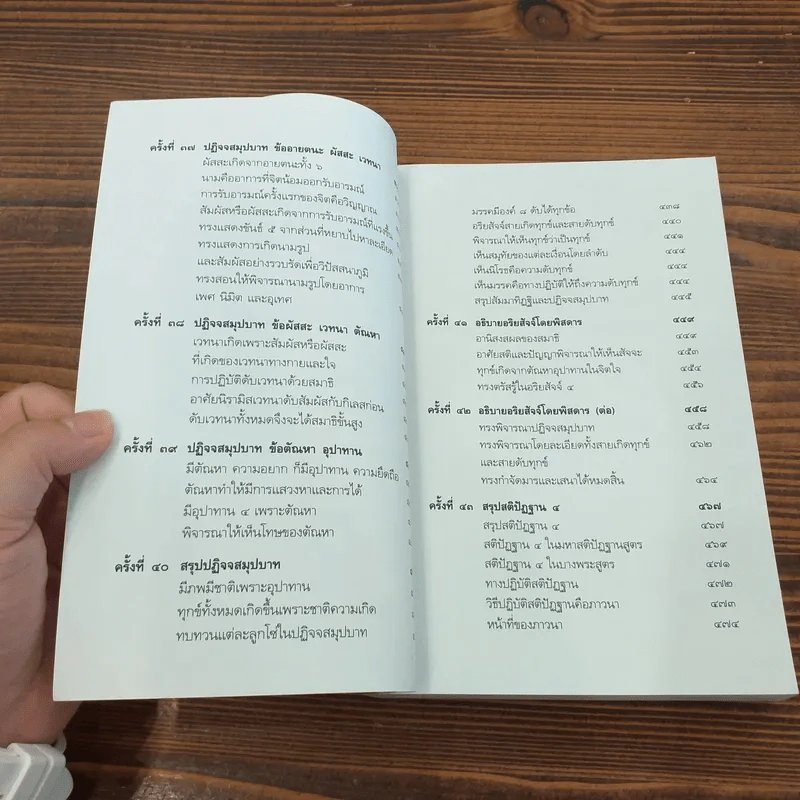 ครั้งที่ ๓๗ ปฏิจจสมุปบาท ข้ออายตนะ ผัสสะ เวทนา
ผัสสะเกิดจากอายตนะทั้ง ๖
นามคืออาการที่จิตน้อมออกรับอารมณ์
การรับอารมณ์ครั้งแรกของจิตคือวิญญาณ
สัมผัสหรือผัสสะเกิดจากการรับอารมณ์ที่แรงขึ้น
ทรงแสดงขันธ์ ๕ จากส่วนที่หยาบไปหาละเอียด
ทรงแสดงการเกิดนามรูป
และสัมผัสอย่างรวบรัดเพื่อวิปัสสนาภูมิ
ทรงสอนให้พิจารณานามรูปโดยอาการ
เพศ นิมิต และอุเทศ
ครั้งที่ ๓๘ ปฏิจจสมุปบาท ข้อผัสสะ เวทนา ตัณหา
เวทนาเกิดเพราะสัมผัสหรือผัสสะ
ที่เกิดของเวทนาทางกายและใจ
การปฏิบัติดับเวทนาด้วยสมาธิ
อาศัยนิรามิสเวทนาดับสัมผัสกับกิเลสก่อน
ดับเวทนาทั้งหมดจึงจะได้สมาธิขั้นสูง
ครั้งที่ ๓๙ ปฏิจจสมุปบาท ข้อตัณหา อุปาทาน
มีตัณหา ความอยาก ก็มีอุปาทาน ความยึดถือ
ตัณหาทำให้มีการแสวงหาและการได้
มีอุปาทาน ๔ เพราะตัณหา
พิจารณาให้เห็นโทษของตัณหา
ครั้งที่ ๔๐ สรุปปฏิจจสมุปบาท
มีภพมีชาติเพราะอุปาทาน
ทุกข์ทั้งหมดเกิดขึ้นเพราะชาติความเกิด
ทบทวนแต่ละลูกโซ่ในปฏิจจสมุปบาท
มรรคมีองค์ ๘ ดับได้ทุกข้อ ๔๓๘
อริยสัจจ์สายเกิดทุกข์และสายดับทุกข์ ๔๔๐
พิจารณาให้เห็นทุกข์ว่าเป็นทุกข์ ๔๔๑
เห็นสมุทัยของแต่ละเรื่องโดยลำดับ ๔๔๔
เห็นนิโรธคือความดับทุกข์ ๔๔๔
เห็นมรรคคือทางปฏิบัติให้ถึงความดับทุกข์ ๔๔๔
สรุปสัมมาทิฏฐิและปฏิจจสมุปบาท ๔๔๕
ครั้งที่ ๔๑ อธิบายอริยสัจจ์โดยพิสดาร ๔๔๙
อานิสงสผลของสมาธิ ๔๔๙
อาศัยสติและปัญญาพิจารณาให้เห็นสัจจะ ๔๕๓
ทุกข์เกิดจากตัณหาอุปาทานในจิตใจ ๔๕๔
ทรงตรัสรู้ในอริยสัจจ์ ๔ ๔๕๖
ครั้งที่ ๔๒ อธิบายอริยสัจจ์โดยพิสดาร (ต่อ) ๔๕๘
ทรงพิจารณาปฏิจจสมุปบาท ๔๕๘
ทรงพิจารณาโดยละเอียดทั้งสายเกิดทุกข์ ๔๖๒
และสายดับทุกข์
ทรงกำจัดมารและเสนาได้หมดสิ้น ๔๖๔
ครั้งที่ ๔๓ สรุปสติปัฏฐาน ๔ ๔๖๗
สรุปสติปัฏฐาน ๔ ๔๖๗
สติปัฏฐาน ๔ ในมหาสติปัฏฐานสูตร ๔๖๙
สติปัฏฐาน ๔ ในบางพระสูตร ๔๗๑
ทางปฏิบัติสติปัฏฐาน ๔๗๒
วิธีปฏิบัติสติปัฏฐานคือภาวนา ๔๗๓
หน้าที่ของภาวนา ๔๗๔